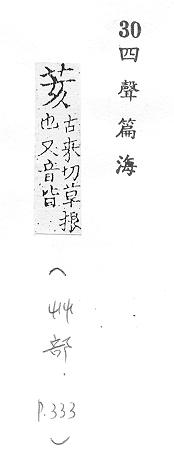 30四聲篇海
荄古來切草根
也又音皆
(艸部.
P.333)